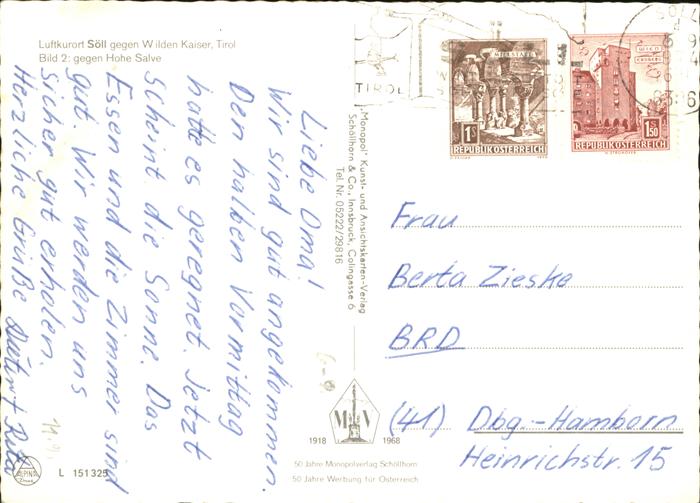 Luftkurort Söll gegen Wilden Kaiser, Tirol
Bild 2: gegen Hohe Salve
Liebe Oma!
Wir sind gut angekommen.
Den halben Vormittag
hatte es geregnet. Jetzt
scheint die Sonne. Das
Essen und die Zimmer sind
gut. Wir werden uns
sicher gut erholen.
Herzliche Grüße Rita
Monopol- Kunst- und Ansichtskarten-Verlag
Schöllhorn & Co., Innsbruck, Colingasse 6
Tel. Nr. 05222/29816
TIROL
1S
REPUBLIK ÖSTERREICH
1S50
REPUBLIK ÖSTERREICH
Frau
Berta Zieske
BRD
(41) Dbg.-Hamborn
Heinrichstr. 15
M V
1918 1968
50 Jahre Monopolverlag Schöllhorn
50 Jahre Werbung für Österreich
ALPINA
L 151325